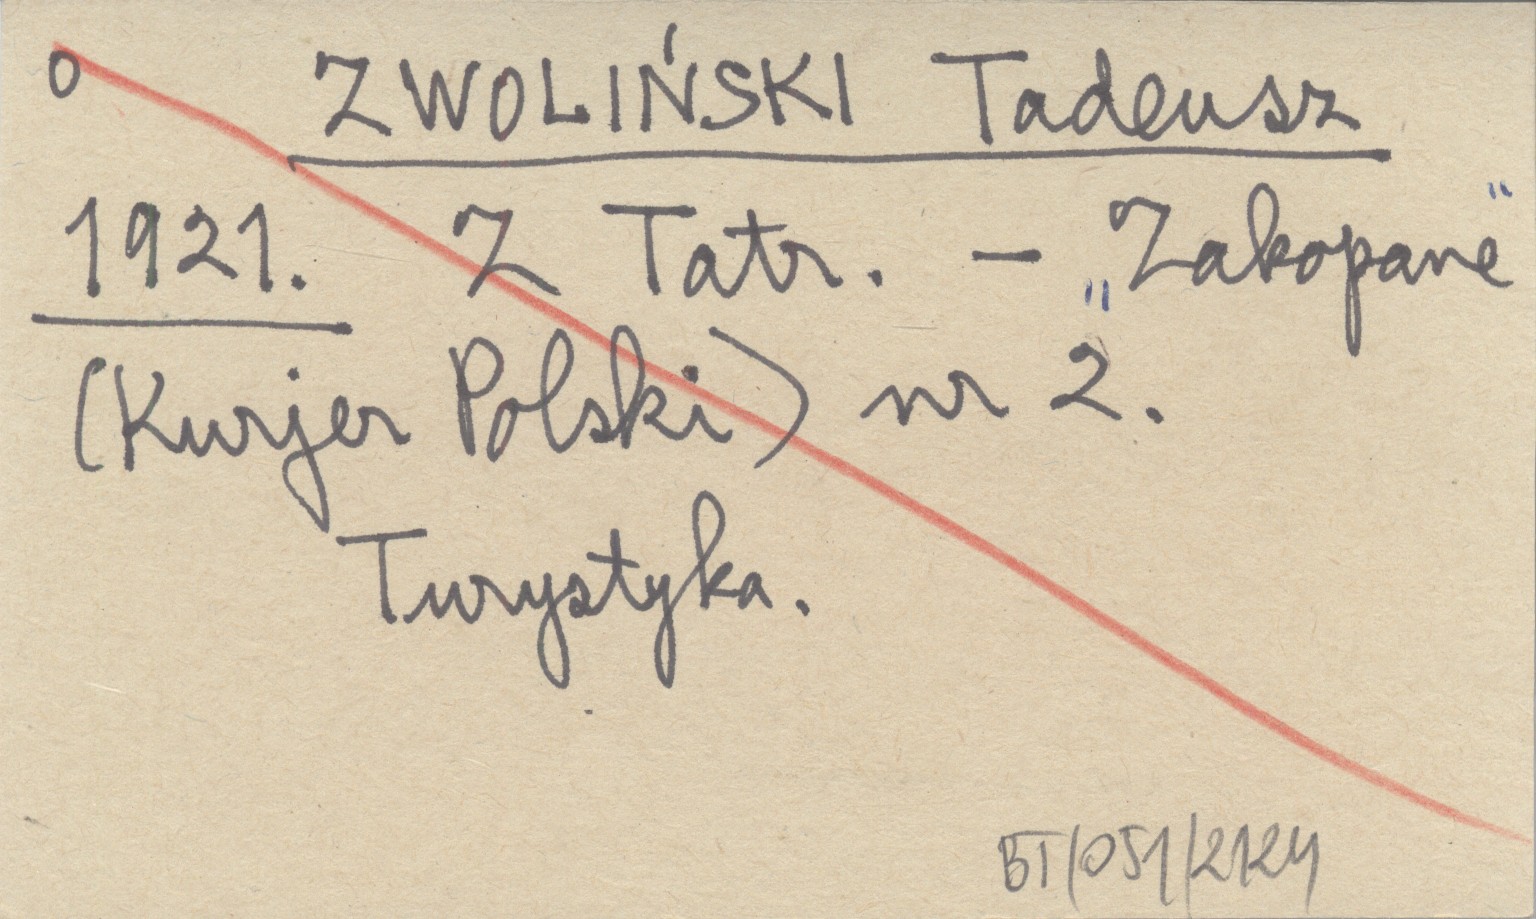 o ZWOLIŃSKI Tadeusz
1921. Z Tatr. - „Zakopane"
(Kurjer Polski) nr 2.
Turystyka.
BT/051/2124